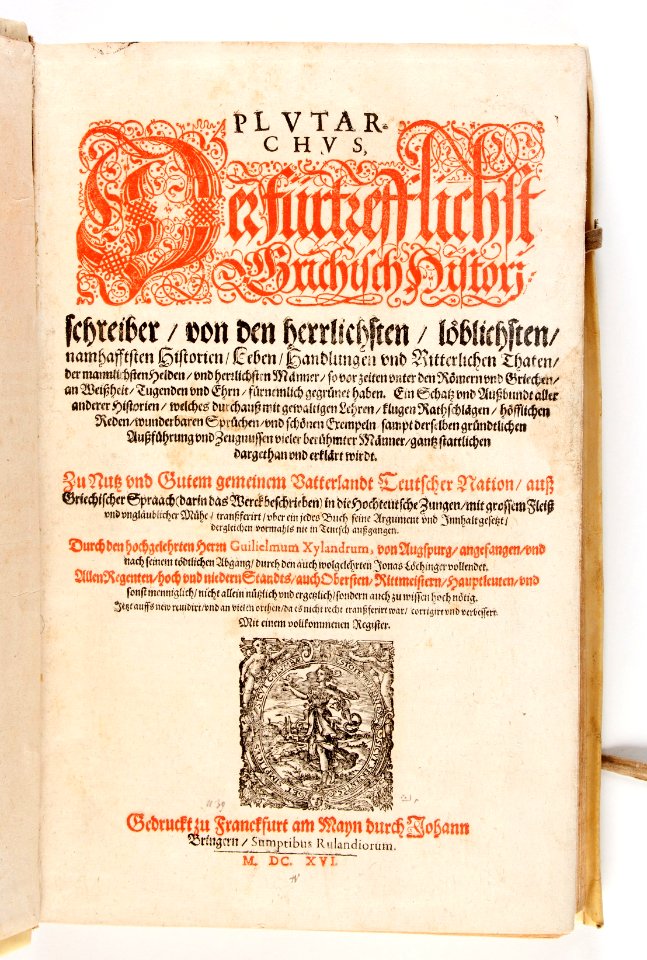 PLVTAR-
CHVS,
Der fürtrefflichst
Grichisch Histori-
schreiber / von den herrlichsten / löblichsten /
namhafftsten Historien / Leben / Handlungen vnd Ritterlichen Thaten /
der mannlichsten Helden / vnd herzlichsten Männer / so vor zeiten vnter den Römern vnd Griechen /
an Weißheit / Tugenden vnd Ehrn / fürnemlich gegrünet haben. Ein Schatz vnd Außbundt aller
anderer Historien / welches durchauß mit gewaltigen Lehren / klugen Rathschlägen / höfflichen
Reden / wunderbaren Sprüchen / vnd schönen Exempeln sampt derselben gründtlichen
Außführung vnd Zeugnussen vieler berühmter Männer / gantz stattlichen
dargethan vnd erklärt wirdt.
Zu Nutz vnd Gutem gemeinem Vatterlandt Teutscher Nation / auß
Griechischer Spraach (darin das Werck beschrieben) in die Hochteutsche Zungen / mit grossem Fleiß
vnd vngläublicher Mühe / transferirt / vber ein jedes Buch seine Argument vnd Innhalt gesetzt /
dergleichen vormahls nie in Teutsch außgangen.
Durch den hochgelehrten Herrn Guilielmum Xylandrum, von Augspurg / angefangen / vnd
nach seinem tödtlichen Abgang / durch den auch wolgelehrten Jonas Löchinger vollendet.
Allen Regenten / hoch vnd nidern Standts / auch Obersten / Rittmeistern / Hauptleuten / vnd
sonst menniglich / nicht allein nützlich vnd ergetzlich / sondern auch zu wissen hoch nötig.
Jetzt auffs new reuidirt / vnd an vielen orthen / da es nicht recht transferirt war / corrigirt vnd verbessert.
Mit einem vollkommenen Register.
Gedruckt zu Franckfurt am Mayn durch Johann
Bringern / Sumptibus Rulandiorum.
M. DC. XVI.